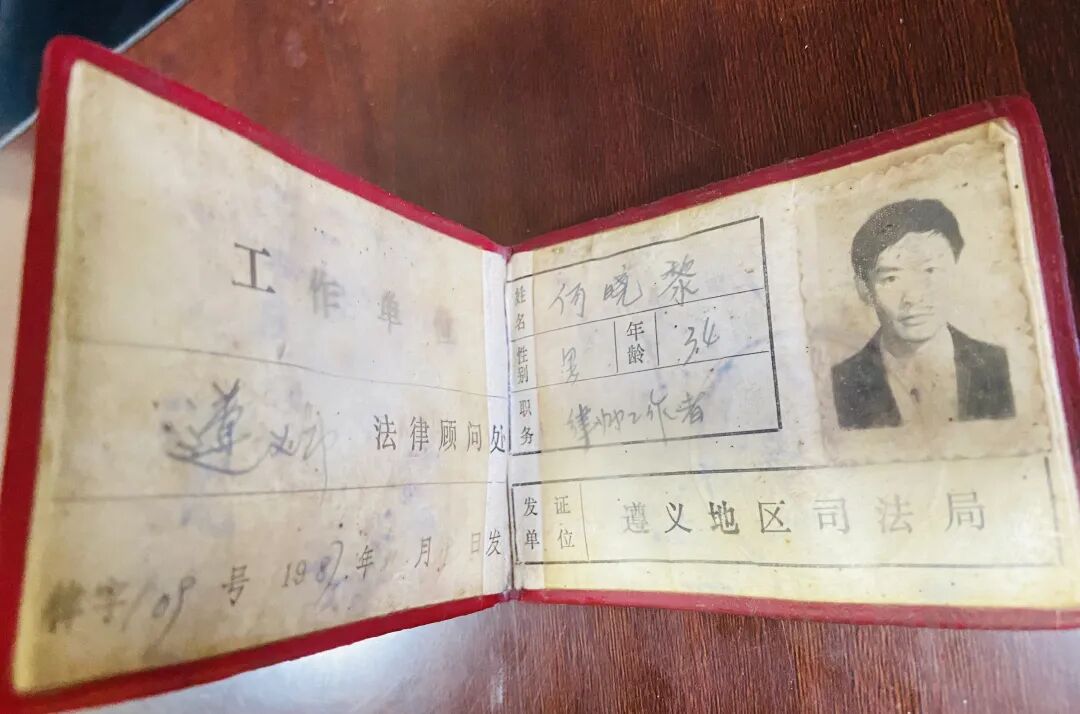 工作单位
遵义市 法律顾问处
字109号 1987年 月 日发
姓名 何晓黎
性别 男 年龄 34
职务 律师工作者
发证单位 遵义地区司法局